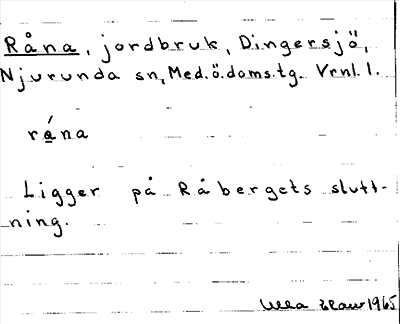 Råna, jordbruk, Dingersjö,
Njurunda sn, Med. ö. doms. tg. Vrnl. 1.
råna
Ligger på Råbergets slutt-
ning.
Ulla 1965